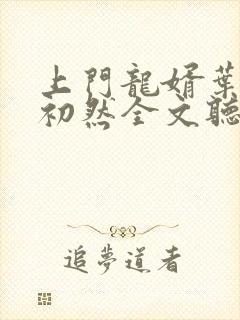 上門龍婿葉
初然全文聽
追夢道者